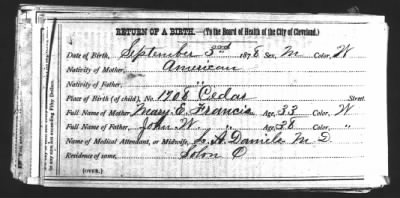 RETURN OF A BIRTH.—(To the Board of Health of the City of Cleveland.)
Date of Birth, September 3rd 1878 Sex, M Color, W
Nativity of Mother, American
Nativity of Father, "
Place of Birth (of child), No. 1708 Cedar Street.
Full Name of Mother, Mary E. Francis Age, 33 Color, W
Full Name of Father, John W. " Age, 38 Color, "
Name of Medical Attendant, or Midwife, L. A. Daniels M D
Residence of same, Solon O
(OVER.)
not exceeding Fifty Dollars.